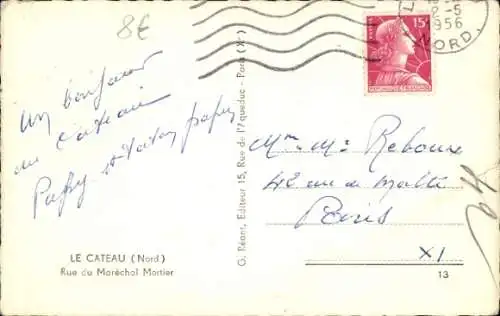 8€
Un bonjour
du Cateau
Papy et Taton papy
LE CATEAU (Nord)
Rue du Maréchal Mortier
G. Réant, Editeur 15, Rue de l'Aqueduc - Paris (Xe)
2-5
1956
NORD
15F
POSTES
REPUBLIQUE FRANÇAISE
Mme Mr Rebourse
42 rue de Malte
Paris
XI
13